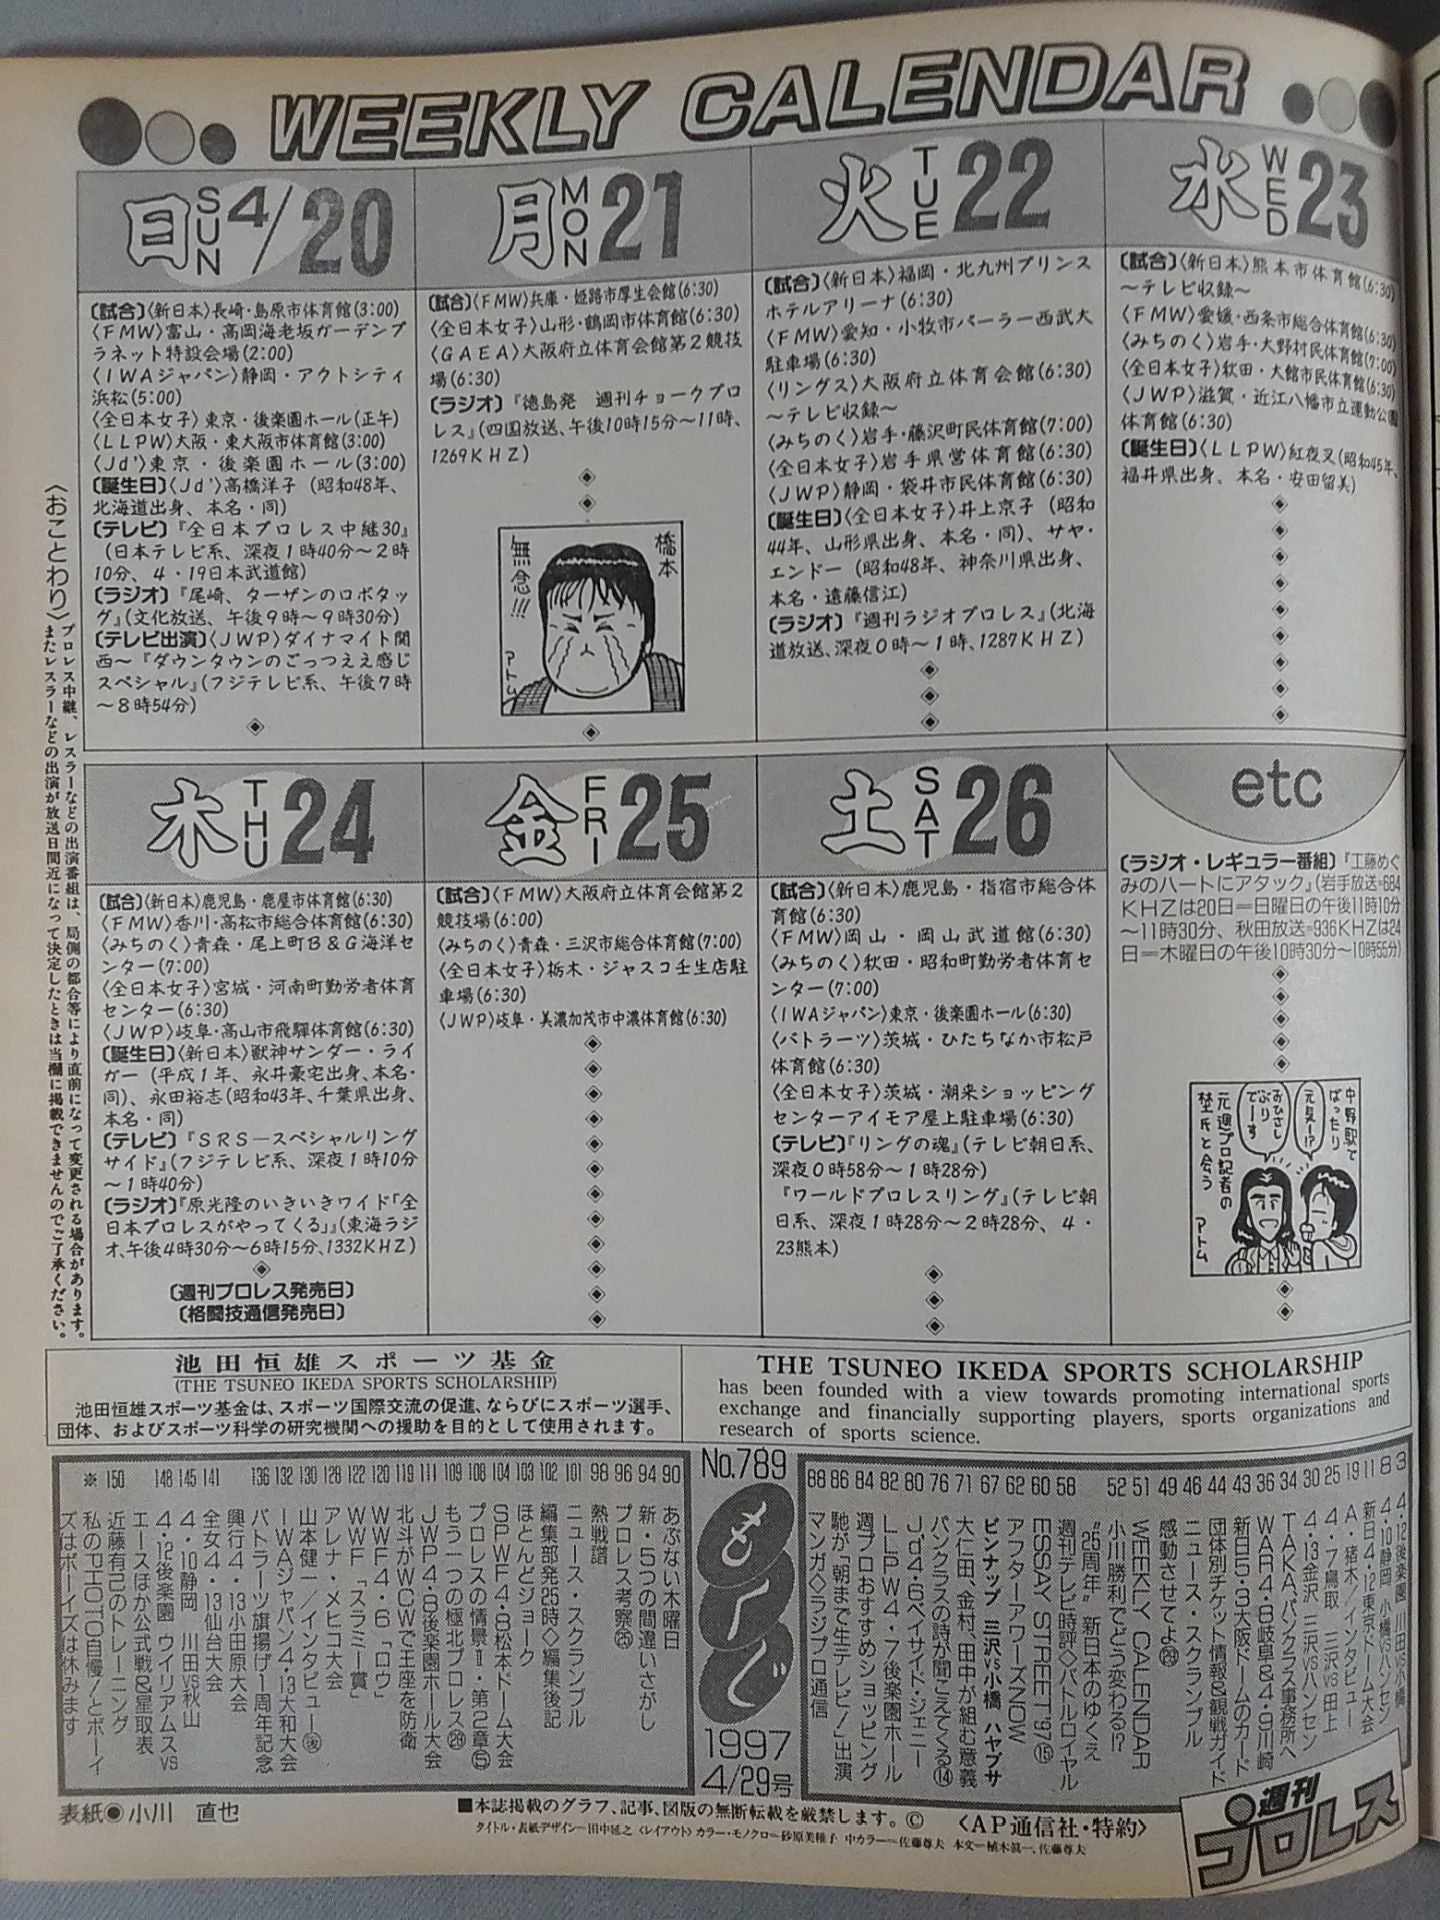 WEEKLY CALENDAR
日 SUN 4/20
〔試合〕〈新日本〉長崎・島原市体育館(3:00)
〈FMW〉富山・高岡海老坂ガーデンプ
ラネット特設会場(2:00)
〈IWAジャパン〉静岡・アクトシティ
浜松(5:00)
〈全日本女子〉東京・後楽園ホール(正午)
〈LLPW〉大阪・東大阪市体育館(3:00)
〈Jd'〉東京・後楽園ホール(3:00)
〔誕生日〕〈Jd'〉高橋洋子（昭和48年、
北海道出身、本名・同）
〔テレビ〕『全日本プロレス中継30』
（日本テレビ系、深夜1時40分〜2時
10分、4・19日本武道館）
〔ラジオ〕『尾崎、ターザンのロボタッ
グ』(文化放送、午後9時〜9時30分)
〔テレビ出演〕〈JWP〉ダイナマイト関
西〜『ダウンタウンのごっつええ感じ
スペシャル』(フジテレビ系、午後7時
〜8時54分)
月 MON 21
〔試合〕〈FMW〉兵庫・姫路市厚生会館(6:30)
〈全日本女子〉山形・鶴岡市体育館(6:30)
〈GAEA〉大阪府立体育会館第2競技
場(6:30)
〔ラジオ〕『徳島発　週刊チョークプロ
レス』(四国放送、午後10時15分〜11時、
1269KHZ)
橋本
無念!!!
アトム
火 TUE 22
〔試合〕〈新日本〉福岡・北九州プリンス
ホテルアリーナ(6:30)
〈FMW〉愛知・小牧市パーラー西武大
駐車場(6:30)
〈リングス〉大阪府立体育会館(6:30)
〜テレビ収録〜
〈みちのく〉岩手・藤沢町民体育館(7:00)
〈全日本女子〉岩手県営体育館(6:30)
〈JWP〉静岡・袋井市民体育館(6:30)
〔誕生日〕〈全日本女子〉井上京子（昭和
44年、山形県出身、本名・同）、サヤ・
エンドー（昭和48年、神奈川県出身、
本名・遠藤信江）
〔ラジオ〕『週刊ラジオプロレス』(北海
道放送、深夜0時〜1時、1287KHZ)
水 WED 23
〔試合〕〈新日本〉熊本市体育館(6:30)
〜テレビ収録〜
〈FMW〉愛媛・西条市総合体育館(6:30)
〈みちのく〉岩手・大野村民体育館(7:00)
〈全日本女子〉秋田・大館市民体育館(6:30)
〈JWP〉滋賀・近江八幡市立運動公園
体育館(6:30)
〔誕生日〕〈LLPW〉紅夜叉(昭和45年、
福井県出身、本名・安田留美)
木 THU 24
〔試合〕〈新日本〉鹿児島・鹿屋市体育館(6:30)
〈FMW〉香川・高松市総合体育館(6:30)
〈みちのく〉青森・尾上町B&G海洋セ
ンター(7:00)
〈全日本女子〉宮城・河南町勤労者体育
センター(6:30)
〈JWP〉岐阜・高山市飛騨体育館(6:30)
〔誕生日〕〈新日本〉獣神サンダー・ライ
ガー（平成1年、永井豪宅出身、本名・
同）、永田裕志(昭和43年、千葉県出身、
本名・同)
〔テレビ〕『SRS―スペシャルリング
サイド』(フジテレビ系、深夜1時10分
〜1時40分)
〔ラジオ〕『原光隆のいきいきワイド「全
日本プロレスがやってくる」』(東海ラジ
オ、午後4時30分〜6時15分、1332KHZ)
〔週刊プロレス発売日〕
〔格闘技通信発売日〕
金 FRI 25
〔試合〕〈FMW〉大阪府立体育会館第2
競技場(6:00)
〈みちのく〉青森・三沢市総合体育館(7:00)
〈全日本女子〉栃木・ジャスコ壬生店駐
車場(6:30)
〈JWP〉岐阜・美濃加茂市中濃体育館(6:30)
土 SAT 26
〔試合〕〈新日本〉鹿児島・指宿市総合体
育館(6:30)
〈FMW〉岡山・岡山武道館(6:30)
〈みちのく〉秋田・昭和町勤労者体育セ
ンター(7:00)
〈IWAジャパン〉東京・後楽園ホール(6:30)
〈バトラーツ〉茨城・ひたちなか市松戸
体育館(6:30)
〈全日本女子〉茨城・潮来ショッピング
センターアイモア屋上駐車場(6:30)
〔テレビ〕『リングの魂』(テレビ朝日系、
深夜0時58分〜1時28分)
『ワールドプロレスリング』(テレビ朝
日系、深夜1時28分〜2時28分、4・
23熊本)
etc
〔ラジオ・レギュラー番組〕『工藤めぐ
みのハートにアタック』(岩手放送=684
KHZは20日＝日曜日の午後11時10分
〜11時30分、秋田放送=936KHZは24
日＝木曜日の午後10時30分〜10時55分)
中野駅で
ばったり
元気ー!?
おひさし
ぶり
でーす
元週プロ記者の
埜氏と会う
アトム
〈おことわり〉プロレス中継、レスラーなどの出演番組は、局側の都合等により直前になって変更される場合があります。
またレスラーなどの出演が放送日間近になって決定したときは当欄に掲載できませんのでご了承ください。
池田恒雄スポーツ基金
(THE TSUNEO IKEDA SPORTS SCHOLARSHIP)
池田恒雄スポーツ基金は、スポーツ国際交流の促進、ならびにスポーツ選手、
団体、およびスポーツ科学の研究機関への援助を目的として使用されます。
THE TSUNEO IKEDA SPORTS SCHOLARSHIP
has been founded with a view towards promoting international sports
exchange and financially supporting players, sports organizations and
research of sports science.
No.789
もくじ
1997
4/29号
3 4・12後楽園 川田vs小橋
8 4・10静岡 小橋vsハンセン
11 新日4・12東京ドーム大会
19 A・猪木／インタビュー
25 4・7鳥取 三沢vs田上
30 4・13金沢 三沢vsハンセン
34 TAKA、パンクラス事務所へ
36 WAR4・8岐阜&4・9川崎
43 新日5・3大阪ドームのカード
44 団体別チケット情報&観戦ガイド
46 ニュース・スクランブル
49 感動させてよ㉙
51 WEEKLY CALENDAR
52 小川勝利でどう変わる!?
“25周年” 新日本のゆくえ
58 週刊テレビ時評◇バトルロイヤル
60 ESSAY STREET'97⑮
62 アフターアワーズNOW
67 ピンナップ 三沢vs小橋 ハヤブサ
71 大仁田、金村、田中が組む意義
76 パンクラスの詩が聞こえてくる⑭
80 Jd'4・6ベイサイド・ジェニー
82 LLPW4・7後楽園ホール
84 週プロおすすめショッピング
86 馳が「朝まで生テレビ!」出演
88 マンガ◇ラジプロ通信
90 あぶない木曜日
94 新・5つの間違いさがし
96 プロレス考察㉕
98 熱戦譜
101 ニュース・スクランブル
102 編集部発25時◇編集後記
103 ほとんどジョーク
104 SPWF4・8松本ドーム大会
108 プロレスの情景Ⅱ・第2章⑤
109 もう一つの極北プロレス㉘
111 JWP4・8後楽園ホール大会
119 北斗がWCWで王座を防衛
120 WWF4・6「ロウ」
122 WWF「スラミー賞」
128 アレナ・メヒコ大会
130 山本健一／インタビュー㊦
132 IWAジャパン4・13大和大会
136 バトラーツ旗揚げ1周年記念
興行4・13小田原大会
141 全女4・13仙台大会
145 4・10静岡 川田vs秋山
148 4・12後楽園 ウイリアムスvs
エースほか公式戦&星取表
150 近藤有己のトレーニング
※ 私のPHOTO自慢!とボーイ
ズはボーイズは休みます
表紙●小川　直也
■本誌掲載のグラフ、記事、図版の無断転載を厳禁します。Ⓒ 〈AP通信社・特約〉
タイトル・表紙デザイン―田中延之 〈レイアウト〉カラー・モノクロ―砂原美種子 中カラー―佐藤尊夫 本文―植木眞一、佐藤尊夫
週刊プロレス